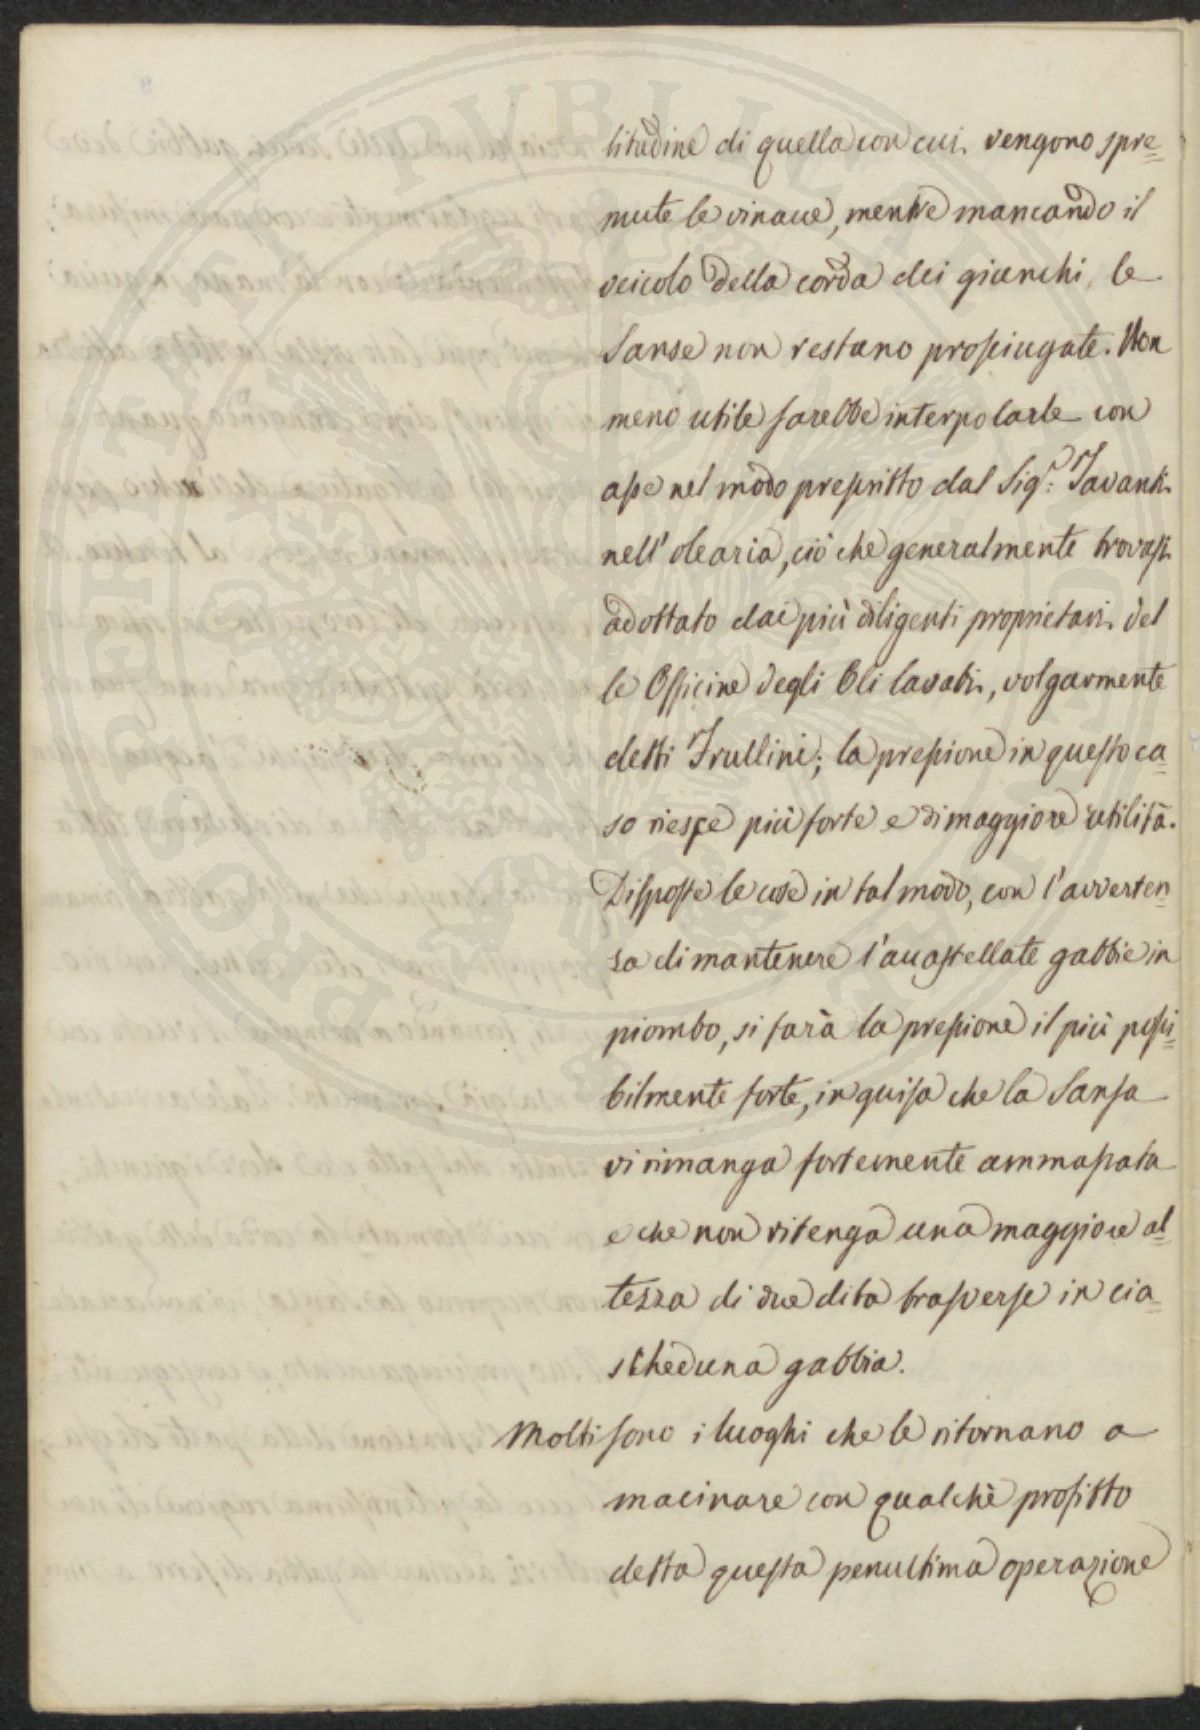 litudine di quella con cui vengono spre=
mute le vinacce, mentre mancando il
veicolo della corda dei giunchi, le
Sanse non restano prosciugate. Non
meno utile sarebbe interpolarle con
asse nel modo prescritto dal Sig.r Tavanti
nell'olearia, ciò che generalmente trovasi
adottato dai più diligenti proprietari del
le Officine degli Oli lavati, volgarmente
detti Frullini; la pressione in questo ca=
so riesce più forte e di maggiore utilità.
Disposte le cose in tal modo, con l'avverten=
za di mantenere l'accastellate gabbie in
piombo, si farà la pressione il più possi=
bilmente forte, in guisa che la Sansa
vi rimanga fortemente ammassata
e che non ritenga una maggiore al=
tezza di due dita trasverse in cia=
scheduna gabbia.
Molti sono i luoghi che le ritornano a
macinare con qualche profitto
detta questa penultima operazione